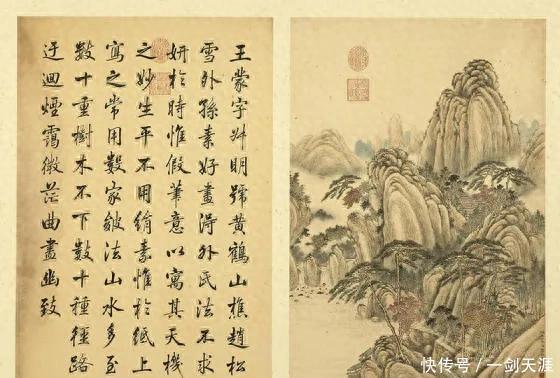 王蒙字叔明號黃鶴山樵趙松
雪外孫素好畫得外氏法不求
妍於時惟假筆意以寓其天機
之妙生平不用絹素惟於紙上
寫之常用數家皴法山水多至
數十重樹木不下數十種徑路
迂迴煙靄微茫曲盡幽致
快传号／一剑天涯